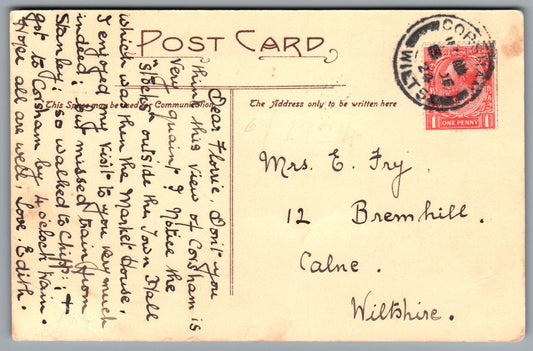 POST CARD
This Space may be used for Communication
The Address only to be written here
Dear Florrie, Don't you
think this view of Corsham is
very quaint? Notice the
"Steps" outside the Town Hall
which was then the Market House.
I enjoyed my visit to you very much
indeed; but missed train from
Stanley; so walked to Chipp: &
got to Corsham by 4 o'clock train.
Hope all are well, Love. Edith.
Mrs. E. Fry.
12 Bremhill.
Calne.
Wiltshire.
CORSHAM
WILTS
1 ONE PENNY 1